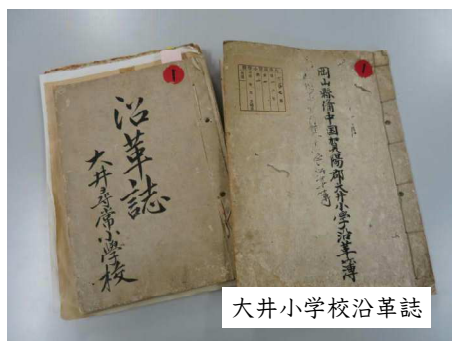 沿革誌
大井尋常小學校
1
岡山縣備中国賀陽郡大井小学沿革簿
大井小学校沿革誌